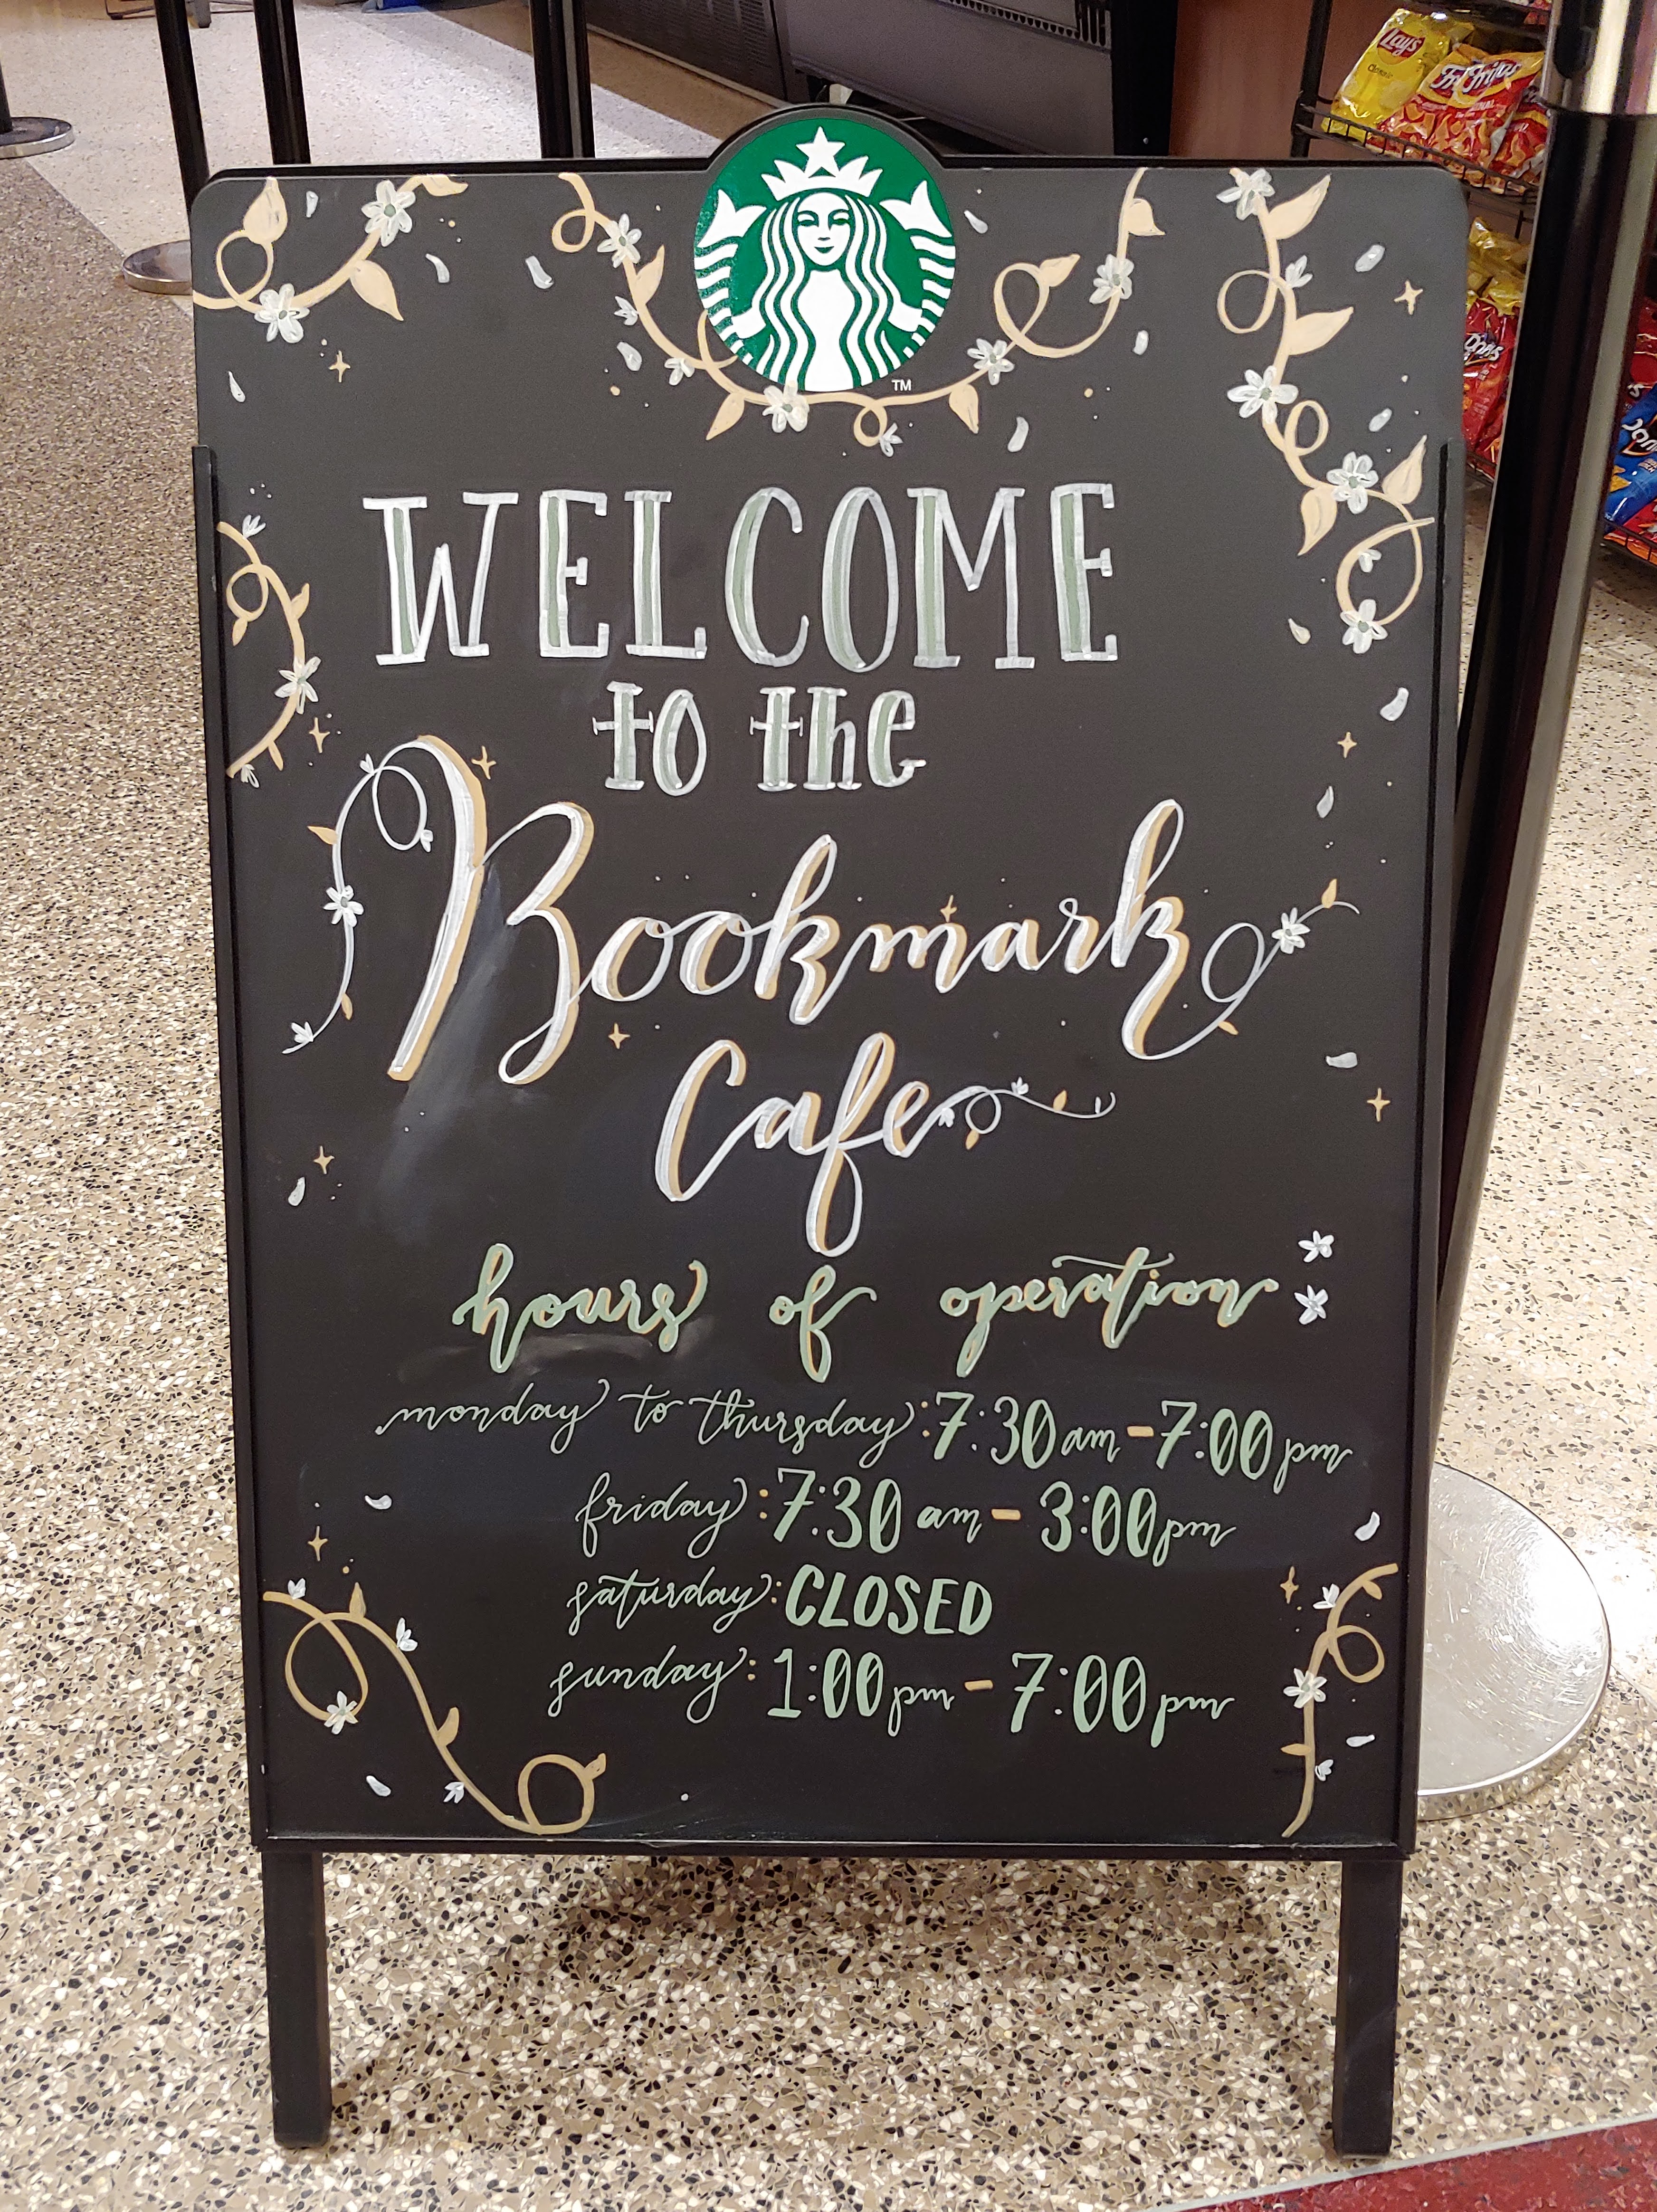 Lay's
Classic
Fritos
TM
WELCOME
to the
Bookmark
Cafe
hours of operation
monday to thursday: 7:30am - 7:00pm
friday: 7:30am - 3:00pm
saturday: CLOSED
sunday: 1:00pm - 7:00pm